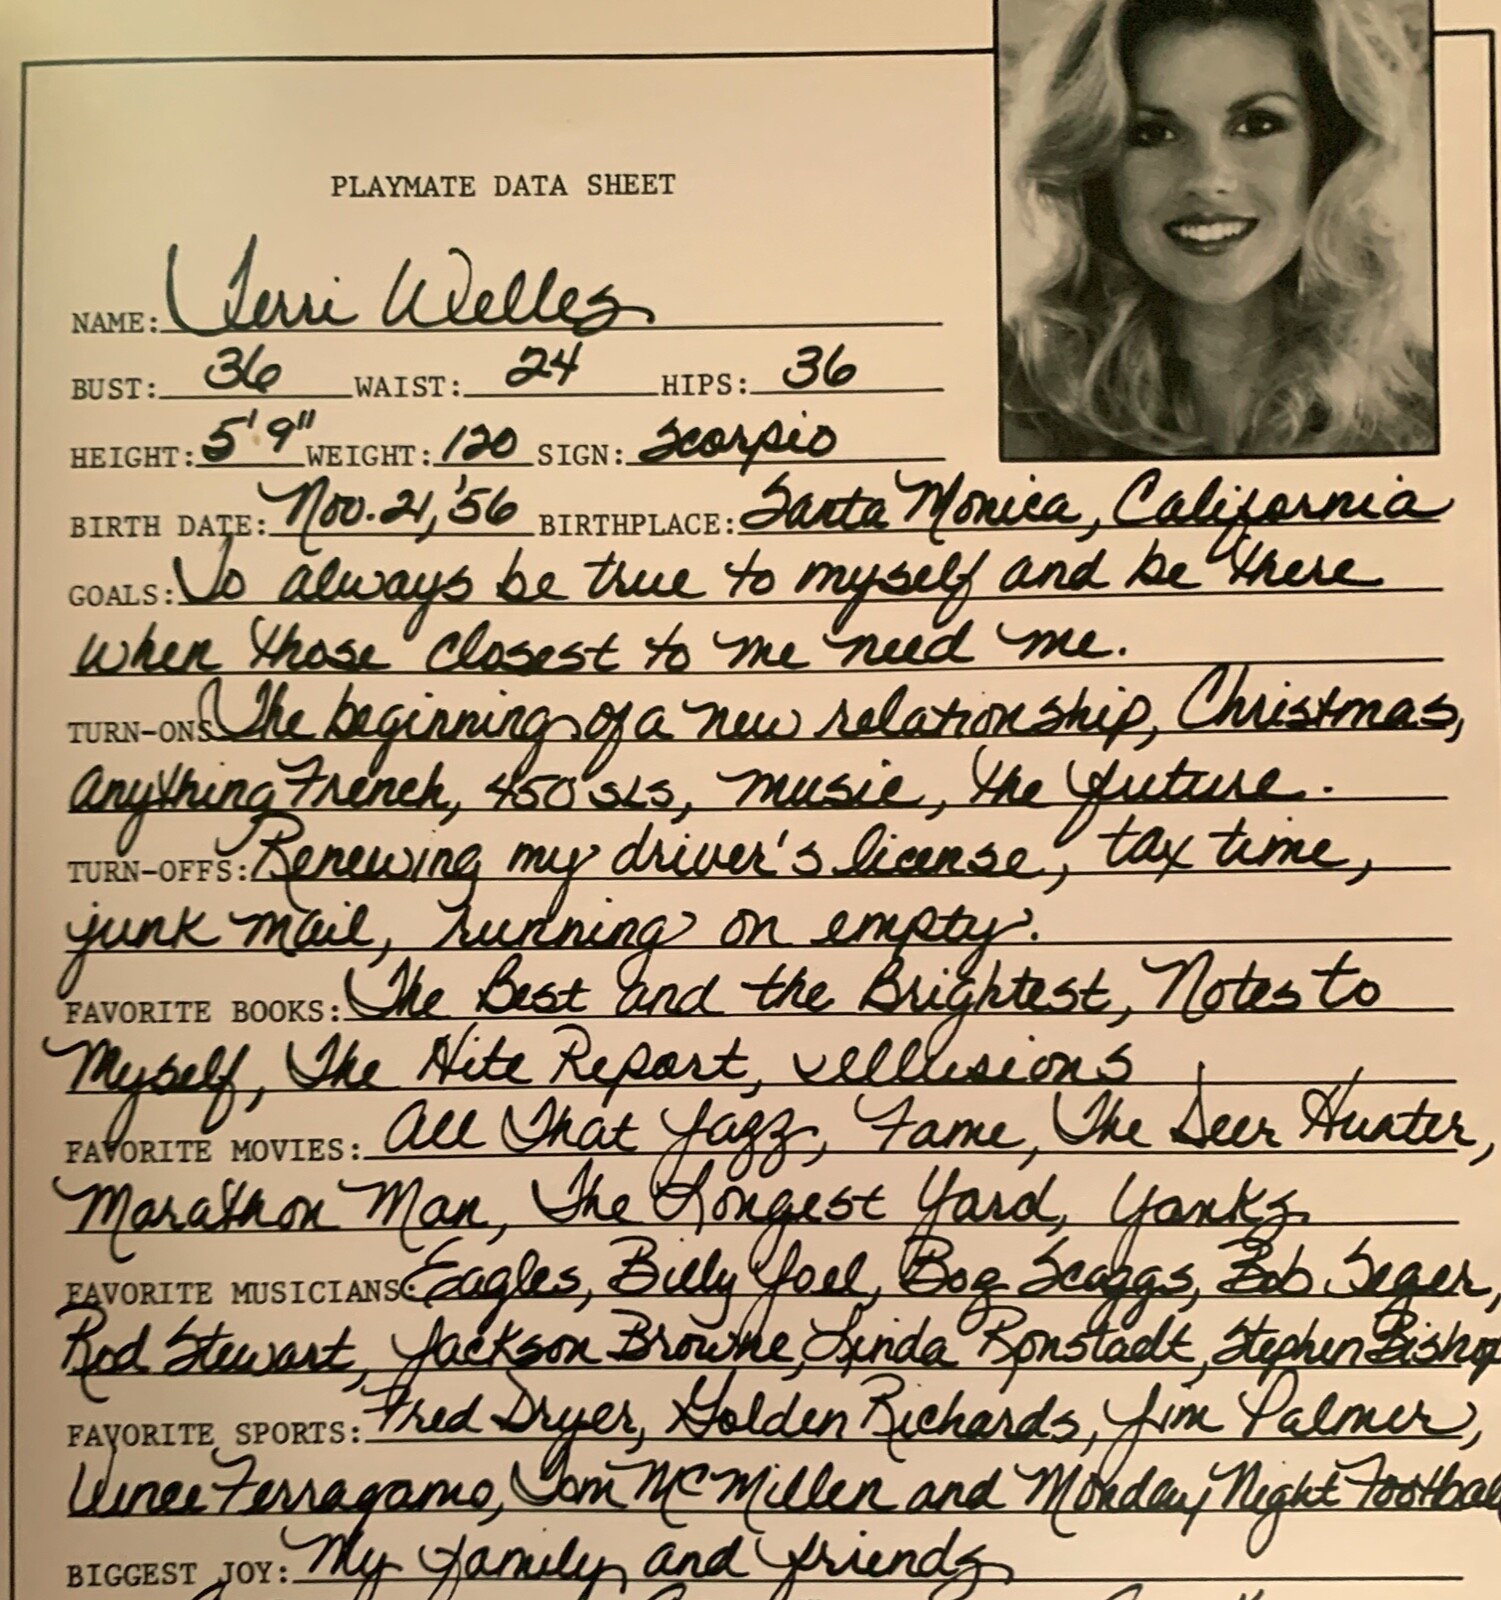 PLAYMATE DATA SHEET
NAME: Terri Welles
BUST: 36 WAIST: 24 HIPS: 36
HEIGHT: 5'9" WEIGHT: 120 SIGN: Scorpio
BIRTH DATE: Nov. 21, '56 BIRTHPLACE: Santa Monica, California
GOALS: To always be true to myself and be there
when those closest to me need me.
TURN-ONS The beginning of a new relationship, Christmas,
anything French, 450 SLs, music, the future.
TURN-OFFS: Renewing my driver's license, tax time,
junk mail, running on empty.
FAVORITE BOOKS: The Best and the Brightest, Notes to
Myself, The Hite Report, Illusions
FAVORITE MOVIES: All That Jazz, Fame, The Deer Hunter,
Marathon Man, The Longest Yard, Yanks
FAVORITE MUSICIANS: Eagles, Billy Joel, Boz Scaggs, Bob Seger,
Rod Stewart, Jackson Browne, Linda Ronstadt, Stephen Bishop
FAVORITE SPORTS: Fred Dryer, Golden Richards, Jim Palmer,
Vince Ferragamo, Tom McMillen and Monday Night Football
BIGGEST JOY: My family and friends